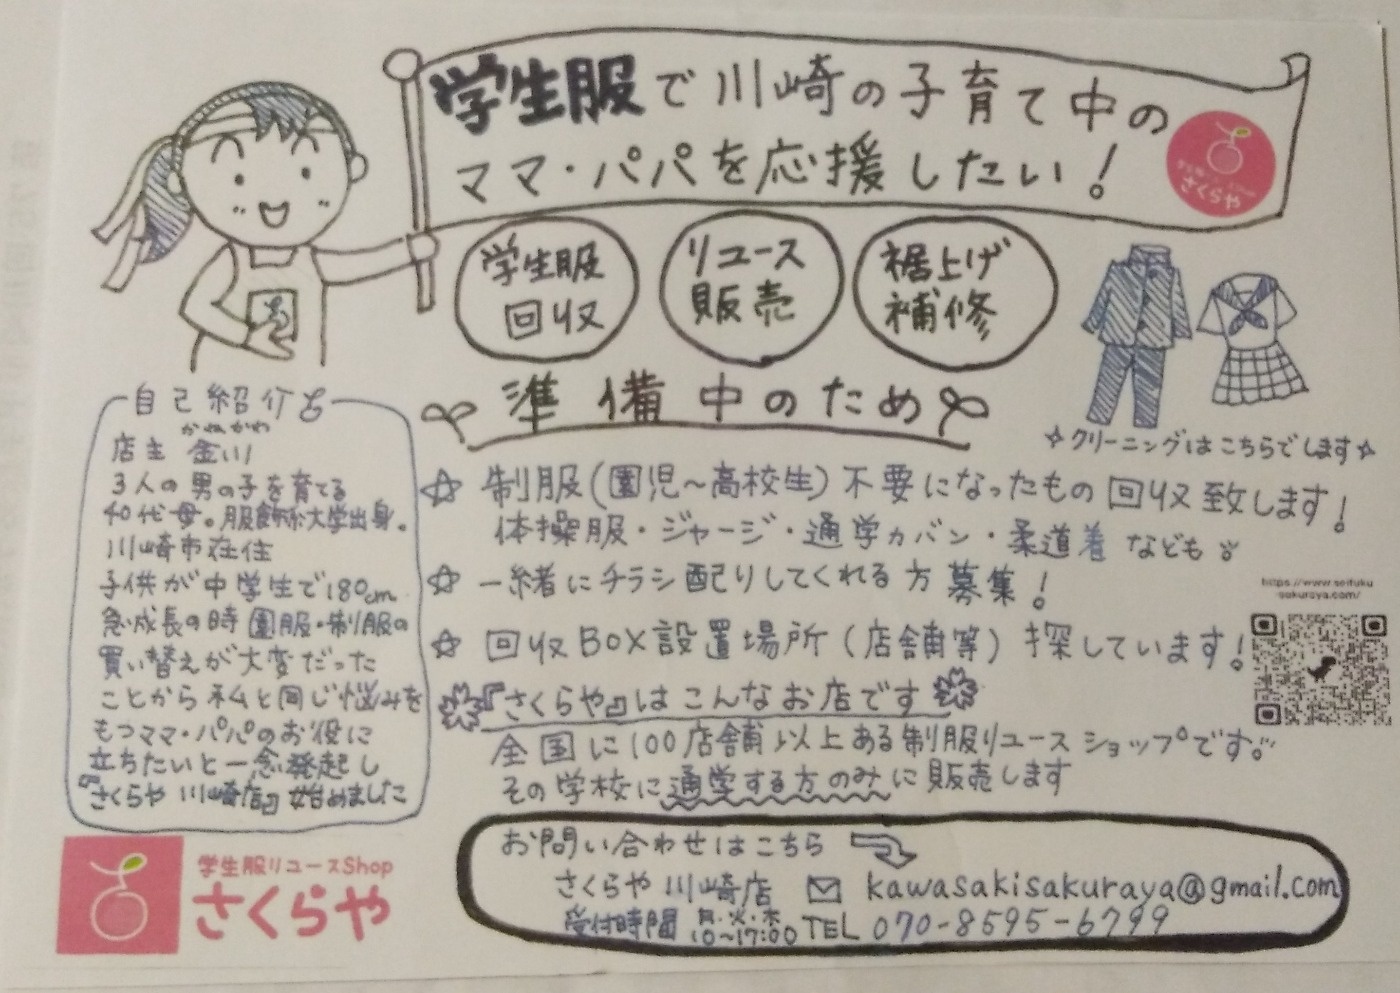 学生服で川崎の子育て中の
ママ・パパを応援したい!
さくらや
学生服
回収
リユース
販売
裾上げ
補修
準備中のため
☆クリーニングはこちらでします☆
自己紹介
かねかわ
店主 金川
3人の男の子を育てる
40代母。服飾系大学出身。
川崎市在住
子供が中学生で180cm
急成長の時 園服・制服の
買い替えが大変だった
ことから 私と同じ悩みを
もつママ・パパのお役に
立ちたいと一念発起し
『さくらや 川崎店』始めました
☆ 制服(園児~高校生)不要になったもの 回収致します!
体操服・ジャージ・通学カバン・柔道着 なども
☆ 一緒にチラシ配りしてくれる方募集!
☆ 回収BOX設置場所(店舗等)探しています!
https://www.seifuku
-sakuraya.com/
『さくらや』はこんなお店です
全国に100店舗以上ある制服リユースショップです。
その学校に通学する方のみに販売します
お問い合わせはこちら
さくらや 川崎店 kawasakisakuraya@gmail.com
受付時間 月・火・木 10~17:00 TEL 070-8595-6799
学生服リユースShop
さくらや